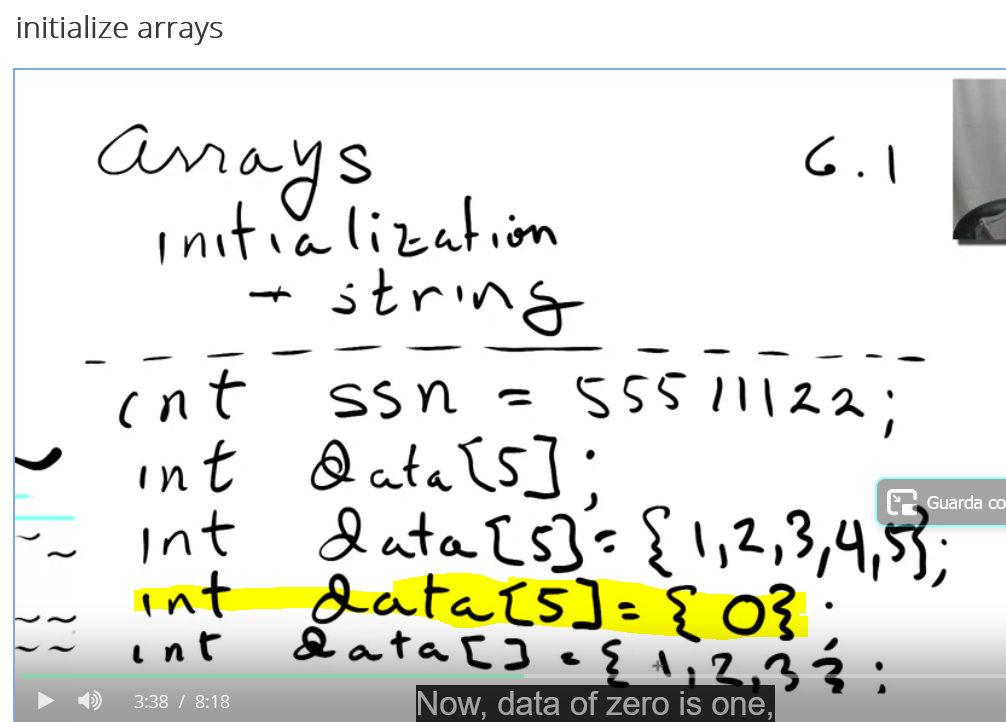 initialize arrays
arrays 6.1
initialization
+ string
int ssn = 55511122;
int data[5];
Guarda co
int data[5] = {1,2,3,4,5};
int data[5] = {0};
int data[] = {1,2,3};
3:38 / 8:18
Now, data of zero is one,